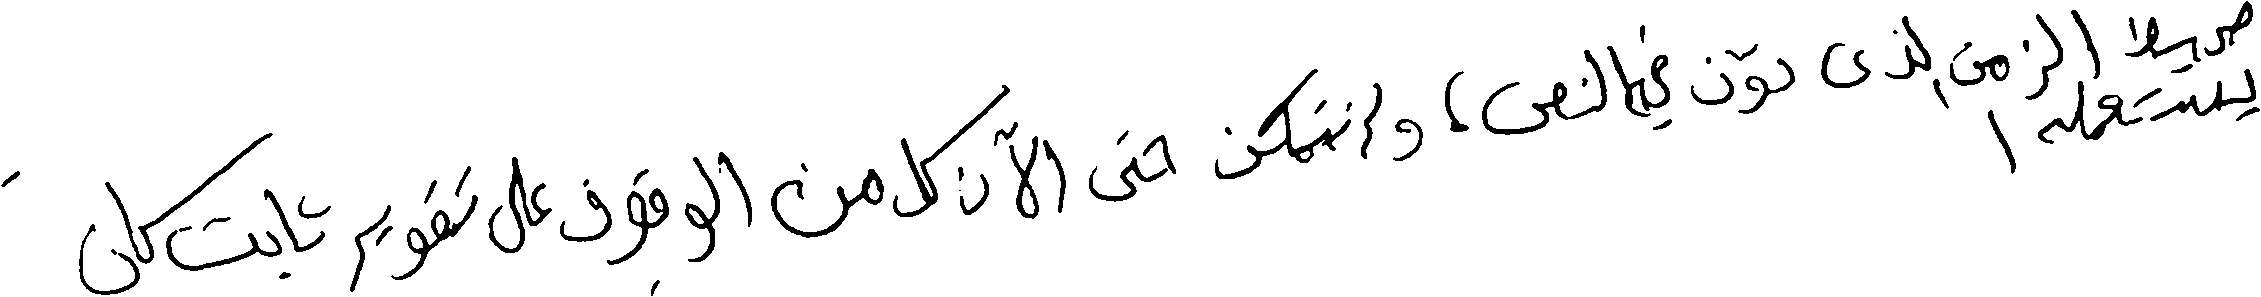 الزمن الذي دوّن فيه النص، ولم نتمكن حتى الآن كل من الوقوف على تقويم ثابت كان
يستعمله